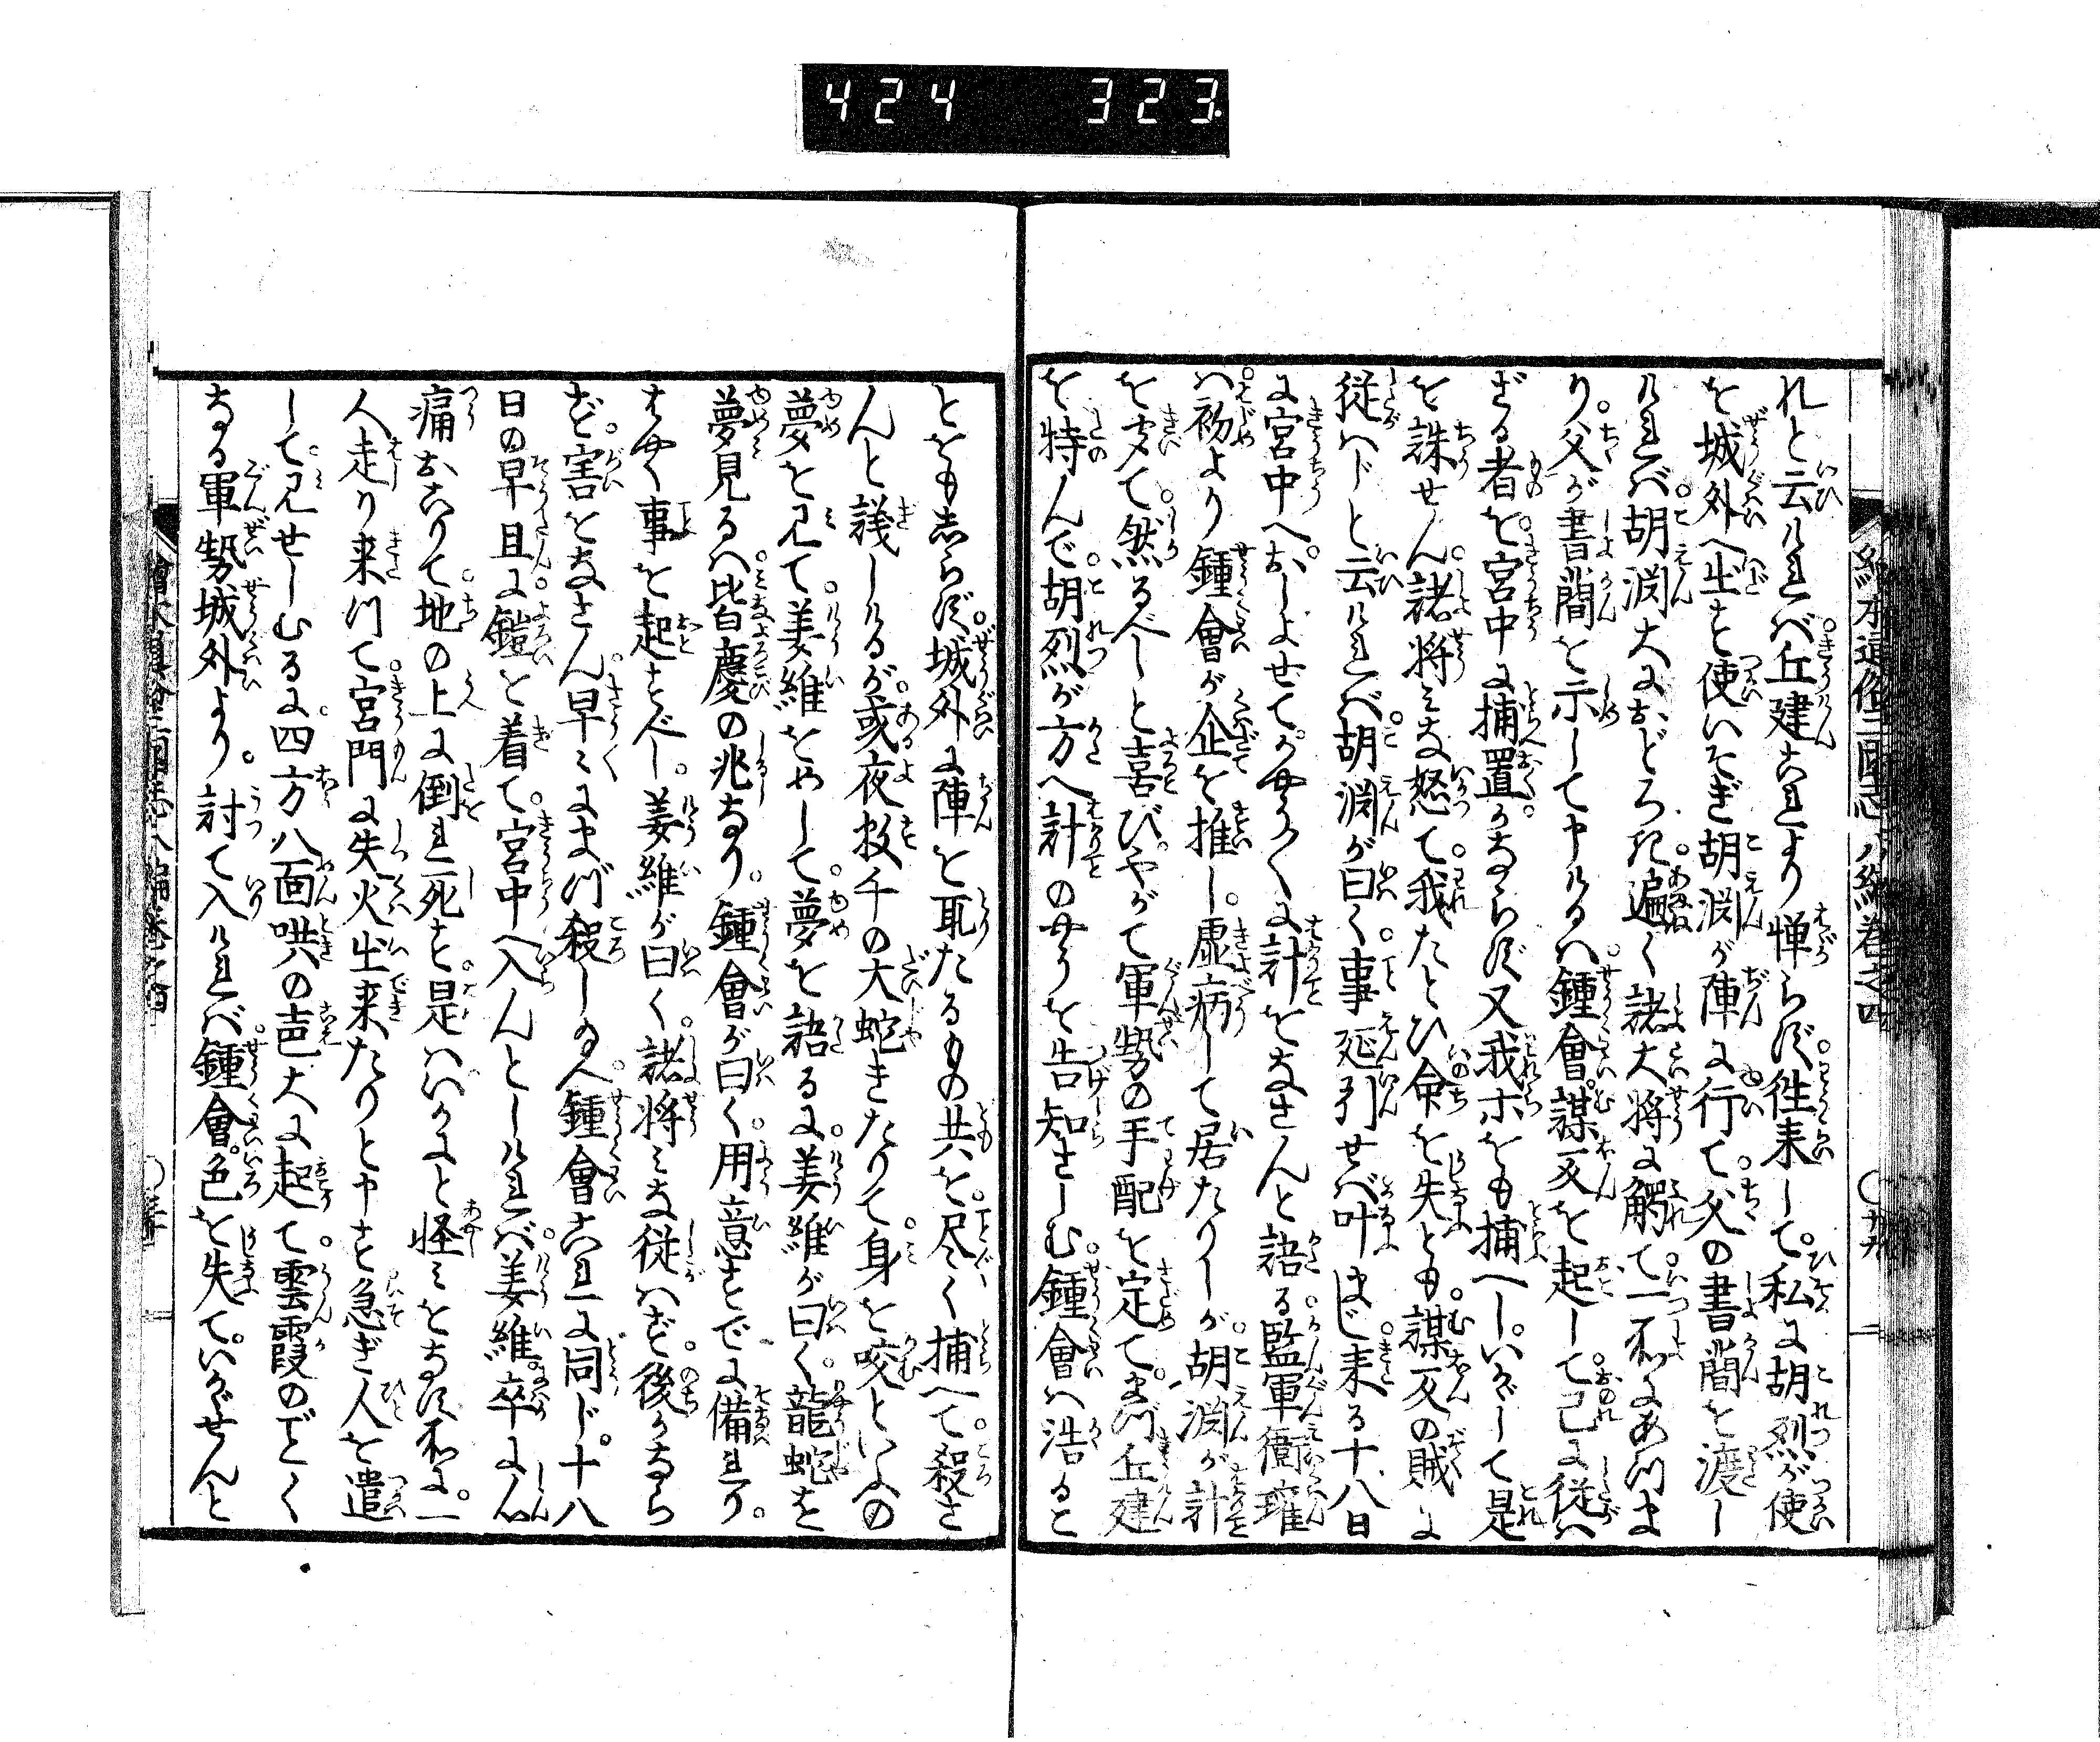 424 323
繪本通俗三国志八編巻之四 ○廿九
れと云けれバ。丘建これより憚らず。往来して。私に胡烈が使
を城外へ出す使いそぎ胡渕が陣に行て。父の書簡を渡し
けれバ。胡渕大におどろき。遍く諸大将に觸て。一所にあつま
り。父が書簡を示して申けるハ。鍾會謀反を起して。己に従ハ
ざる者を。宮中に捕置く。かならず又我ホをも捕へし。いかゞして是
を誅せん。諸将ミな怒て。我たとひ命を失とも。謀反の賊に
従ハじと云けれバ。胡渕が曰く。事延引せバ叶まじ。来る十八日
に宮中へ。おしよせて。かやう〱に計をなさんと語る。監軍衛瓘
ハ。初より鍾會が企を推し。虚病して居たりしが。胡渕が計
を聞て。然るべしと喜び。やがて軍勢の手配を定て。まづ丘建
を特んで。胡烈が方へ計のやうを告知さしむ。鍾會ハ浩ると
ともしらず。城外に陣を取たるもの共を。尽く捕へて。殺さ
んと議しけるが。或夜数千の大蛇きたりて。身を咬といふの
夢を見て。姜維をめして。夢を語るに。姜維が曰く。龍蛇を
夢見るハ。皆慶の兆なり。鍾會が曰く。用意すでに備れり。
はやく事を起すべし。姜維が曰く。諸将ミな従ハず。後かなら
ず。害をなさん。早〻にまづ殺し給へ。鍾會これに同じ。十八
日の早旦に。鎧を着て。宮中へ入んとしけれバ。姜維。卒に心
痛おこりて。地の上に倒れ死す。是ハいかにと怪ミをなす所に。一
人走り来つて。宮門に失火出来たりと申す。急ぎ人を遣
して。見せしむるに。四方八面哄の声大に起て。雲霞のごとく
なる軍勢城外より。討て入けれバ。鍾會。色を失て。いかゞせんと